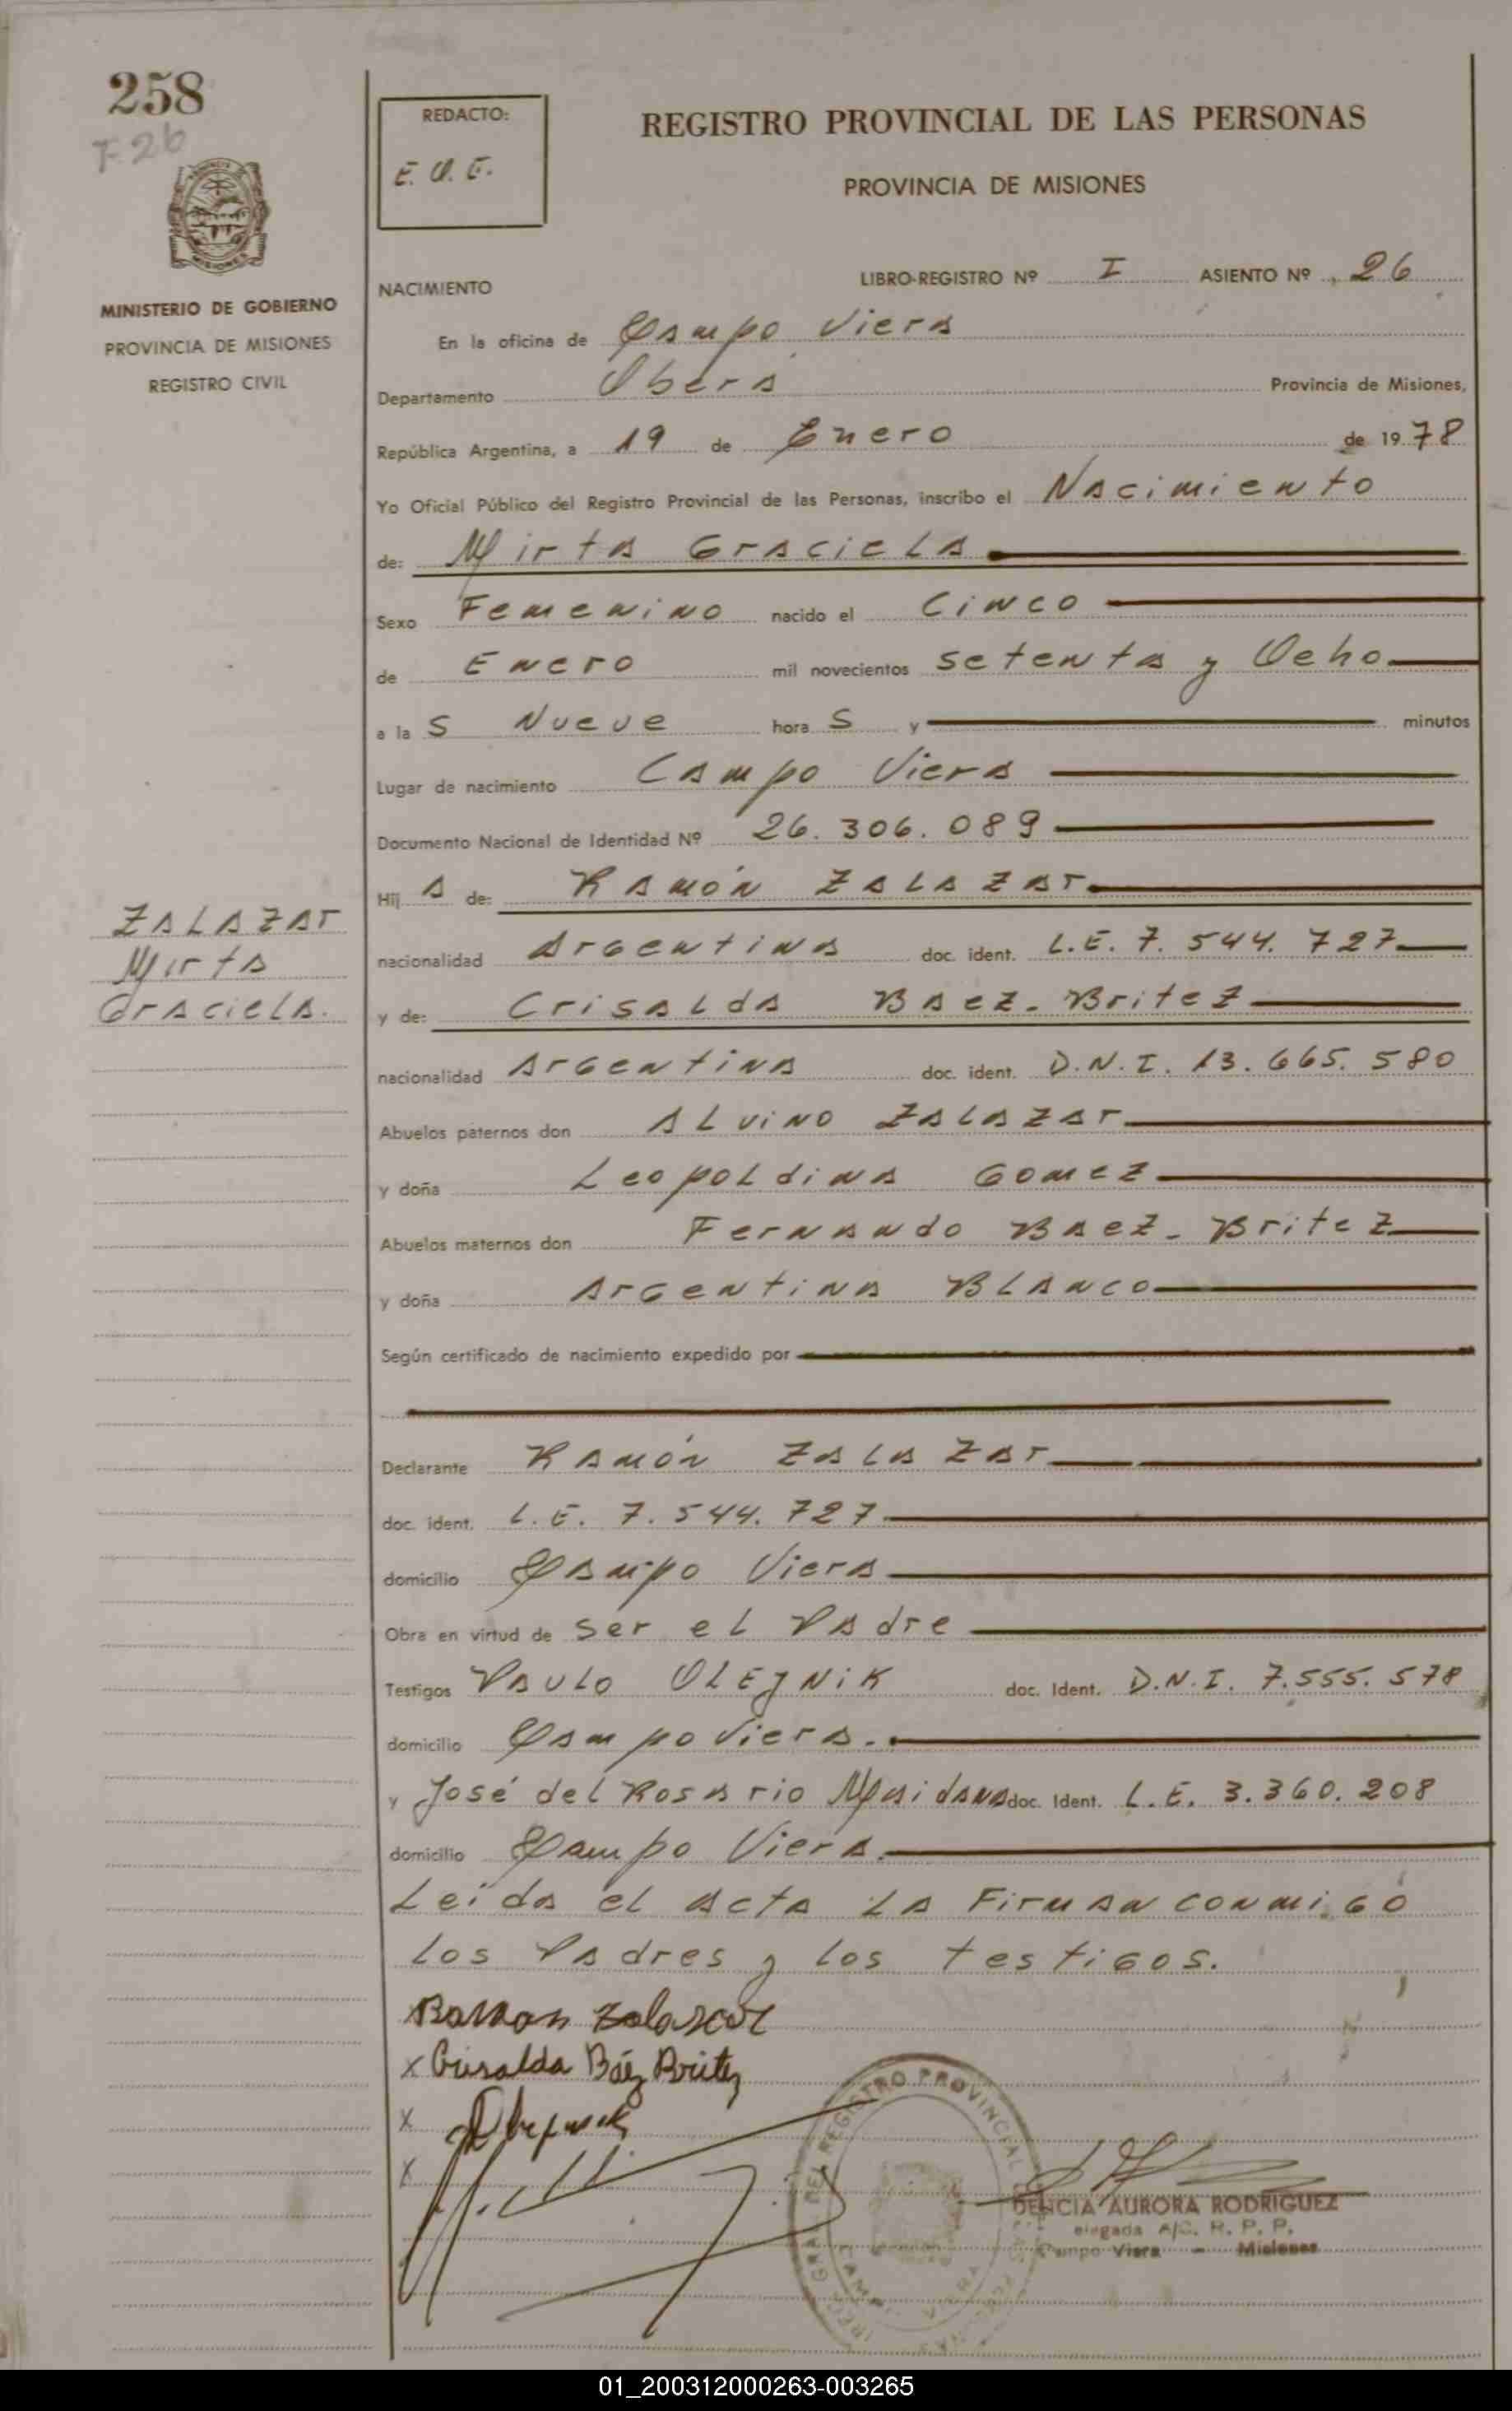 258
F 26
MINISTERIO DE GOBIERNO
PROVINCIA DE MISIONES
REGISTRO CIVIL
REDACTO:
REGISTRO PROVINCIAL DE LAS PERSONAS
PROVINCIA DE MISIONES
NACIMIENTO LIBRO-REGISTRO Nº I ASIENTO Nº 26
En la oficina de Campo Viera
Departamento Oberá Provincia de Misiones,
República Argentina, a 19 de Enero de 1978
Yo Oficial Público del Registro Provincial de las Personas, inscribo el Nacimiento
de: Mirta Graciela
Sexo Femenino nacido el Cinco
de Enero mil novecientos setenta y Ocho
a la s Nueve hora s y minutos
Lugar de nacimiento Campo Viera
Documento Nacional de Identidad Nº 26.306.089
Hij a de: Ramón ZALAZAR
nacionalidad Argentina doc. ident. L.E. 7.544.727
y de: Crisalda Baez-Britez
nacionalidad Argentina doc. ident. D.N.I. 13.665.580
Abuelos paternos don ALvino ZALAZAR
y doña Leopoldina Gomez
Abuelos maternos don Fernando Baez-Britez
y doña Argentina Blanco
Según certificado de nacimiento expedido por
Declarante Ramón ZALAZAR
doc. ident. L.E. 7.544.727
domicilio Campo Viera
Obra en virtud de ser el Padre
Testigos Paulo OLEJNIK doc. Ident. D.N.I. 7.555.578
domicilio Campo Viera.
y José del Rosario Maidana doc. Ident. L.E. 3.360.208
domicilio Campo Viera.
Leída el acta la Firman conmigo
los Padres y los testigos.
ZALAZAR
Mirta
Graciela.
Ramon Zalazar
x Crisalda Báez Britez
x
x
DELICIA AURORA RODRIGUEZ
elegada A/C. R. P. P.
Campo Viera - Misiones
01_200312000263-003265